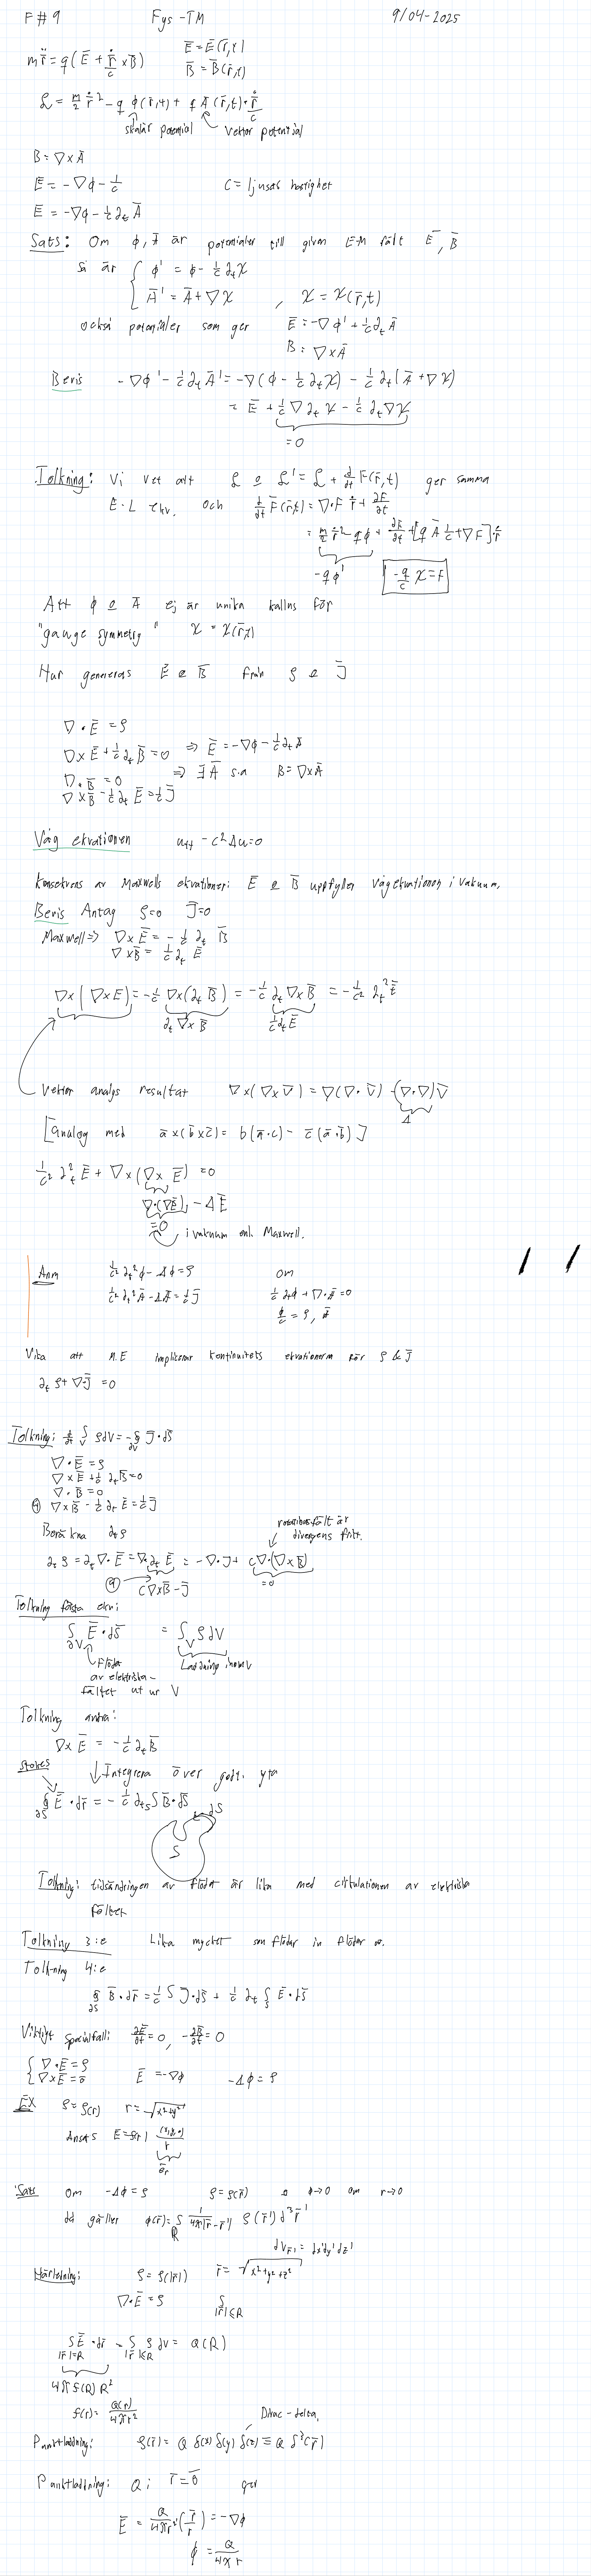 F#9 Fys-TM 9/04-2025
m r̈ = q(Ē + ṙ/c × B̄) Ē = Ē(r̄,t)
B̄ = B̄(r̄,t)
L = m/2 ṙ² - q φ(r̄,t) + q Ā(r̄,t)·ṙ/c
skalär potential vektor potential
B = ∇×Ā
Ē = -∇φ - 1/c C = ljusets hastighet
E = -∇φ - 1/c ∂t Ā
Sats: Om φ, Ā är potentialer till given EM fält Ē, B̄
så är { φ' = φ - 1/c ∂t χ
Ā' = Ā + ∇χ , χ = χ(r̄,t)
också potentialer som ger Ē = -∇φ' + 1/c ∂t Ā
B = ∇×Ā
Bevis -∇φ' - 1/c ∂t Ā' = -∇(φ - 1/c ∂t χ) - 1/c ∂t (Ā + ∇χ)
= Ē + 1/c ∇∂t χ - 1/c ∂t ∇χ
= 0
Tolkning: Vi vet att L & L' = L + d/dt F(r̄,t) ger samma
E-L ekv. och d/dt F(r̄,t) = ∇·F ṙ + ∂F/∂t
= m/2 ṙ² - qφ + ∂F/∂t + [q Ā 1/c + ∇F]·ṙ
-qφ' -q/c χ = F
Att φ & Ā ej är unika kallas för
"gauge symmetry" χ = χ(r̄,t)
Hur genereras Ē & B̄ från ρ & J̄
∇·Ē = ρ
∇×E + 1/c ∂t B̄ = 0 ⇒ Ē = -∇φ - 1/c ∂t Ā
∇·B̄ = 0 ⇒ ∃Ā s.a B = ∇×Ā
∇×B̄ - 1/c ∂t Ē = 1/c J̄
Våg ekvationen utt - c²Δu = 0
Konsekvens av Maxwells ekvationer: Ē & B̄ uppfyller vågekvationen i vakuum.
Bevis Antag ρ=0 J̄=0
Maxwell ⇒ ∇×Ē = -1/c ∂t B̄
∇×B̄ = 1/c ∂t Ē
∇×(∇×E) = -1/c ∇×(∂t B̄) = -1/c ∂t ∇×B̄ = -1/c² ∂t² Ē
∂t ∇×B̄ 1/c ∂t Ē
Vektor analys resultat ∇×(∇×v̄) = ∇(∇·v̄) - (∇·∇)v̄
Δ
[analog med ā×(b̄×c̄) = b(ā·c) - c̄(ā·b̄)]
1/c² ∂t² Ē + ∇×(∇×Ē) = 0
∇·(∇Ē) - ΔĒ
=0 i vakuum enl. Maxwell.
Anm 1/c² ∂t² φ - Δφ = ρ om
1/c² ∂t² Ā - ΔĀ = 1/c J̄ 1/c ∂tφ + ∇·Ā = 0
Visa att M.E implicerar kontinuitets ekvationerna för ρ & J̄
∂t ρ + ∇·J̄ = 0
Tolkning: d/dt ∫V ρdV = -∮∂V J̄·dS̄
∇·Ē = ρ
∇×Ē + 1/c ∂t B̄ = 0
∇·B̄ = 0
④ ∇×B̄ - 1/c ∂t Ē = 1/c J̄
Beräkna ∂t ρ rotationsfält är divergens fritt.
∂t ρ = ∂t ∇·Ē = ∇·∂t Ē = -∇·J + c∇·(∇×B̄)
④ c∇×B̄ - J̄ =0
Tolkning första ekv:
∫∂V Ē·dS̄ = ∫V ρdV
Flödet av elektriska- fältet ut ur V Laddning inom V
Tolkning andra:
∇×Ē = -1/c ∂t B̄
Stokes ↓ Integrera över godt. yta
∮∂S Ē·dr̄ = -1/c ∂t ∫S B̄·dS̄
∂S
S
Tolkning: tidsändringen av flödet är lika med cirkulationen av elektriska
fältet
Tolkning 3:e Lika mycket som flödar in flödar ut.
Tolkning 4:e
∮∂S B̄·dr̄ = 1/c ∫ J̄·dS̄ + 1/c ∂t ∫S Ē·dS̄
Viktigt specialfall: ∂Ē/∂t = 0, -∂B̄/∂t = 0
{ ∇·Ē = ρ
∇×Ē = 0̄ Ē = -∇φ -Δφ = ρ
EX ρ = ρ(r) r = √x²+y²
Ansats
ēr
Sats Om -Δφ = ρ ρ = ρ(r̄) & φ→0 om r→0
då gäller φ(r̄) = ∫R 1/(4π|r̄-r̄'|) ρ(r̄') d³r̄'
dVr̄' = dx'dy'dz'
Härledning: ρ = ρ(|r̄|) r̄ = √x²+y²+z²
∇·Ē = ρ ∫|r̄|≤R
∫|r̄|=R Ē·dr̄ = ∫|r̄|≤R ρ dV = Q(R)
4π f(R) R²
f(r) = Q(r)/4πr²
Dirac-delta,
Punktladdning: ρ(r̄) = Q δ(x) δ(y) δ(z) ≡ Q δ³(r̄)
Punktladdning: Q i r̄ = 0̄ ger
Ē = Q/4πr² (r̄/r) = -∇φ
φ = Q/4πr